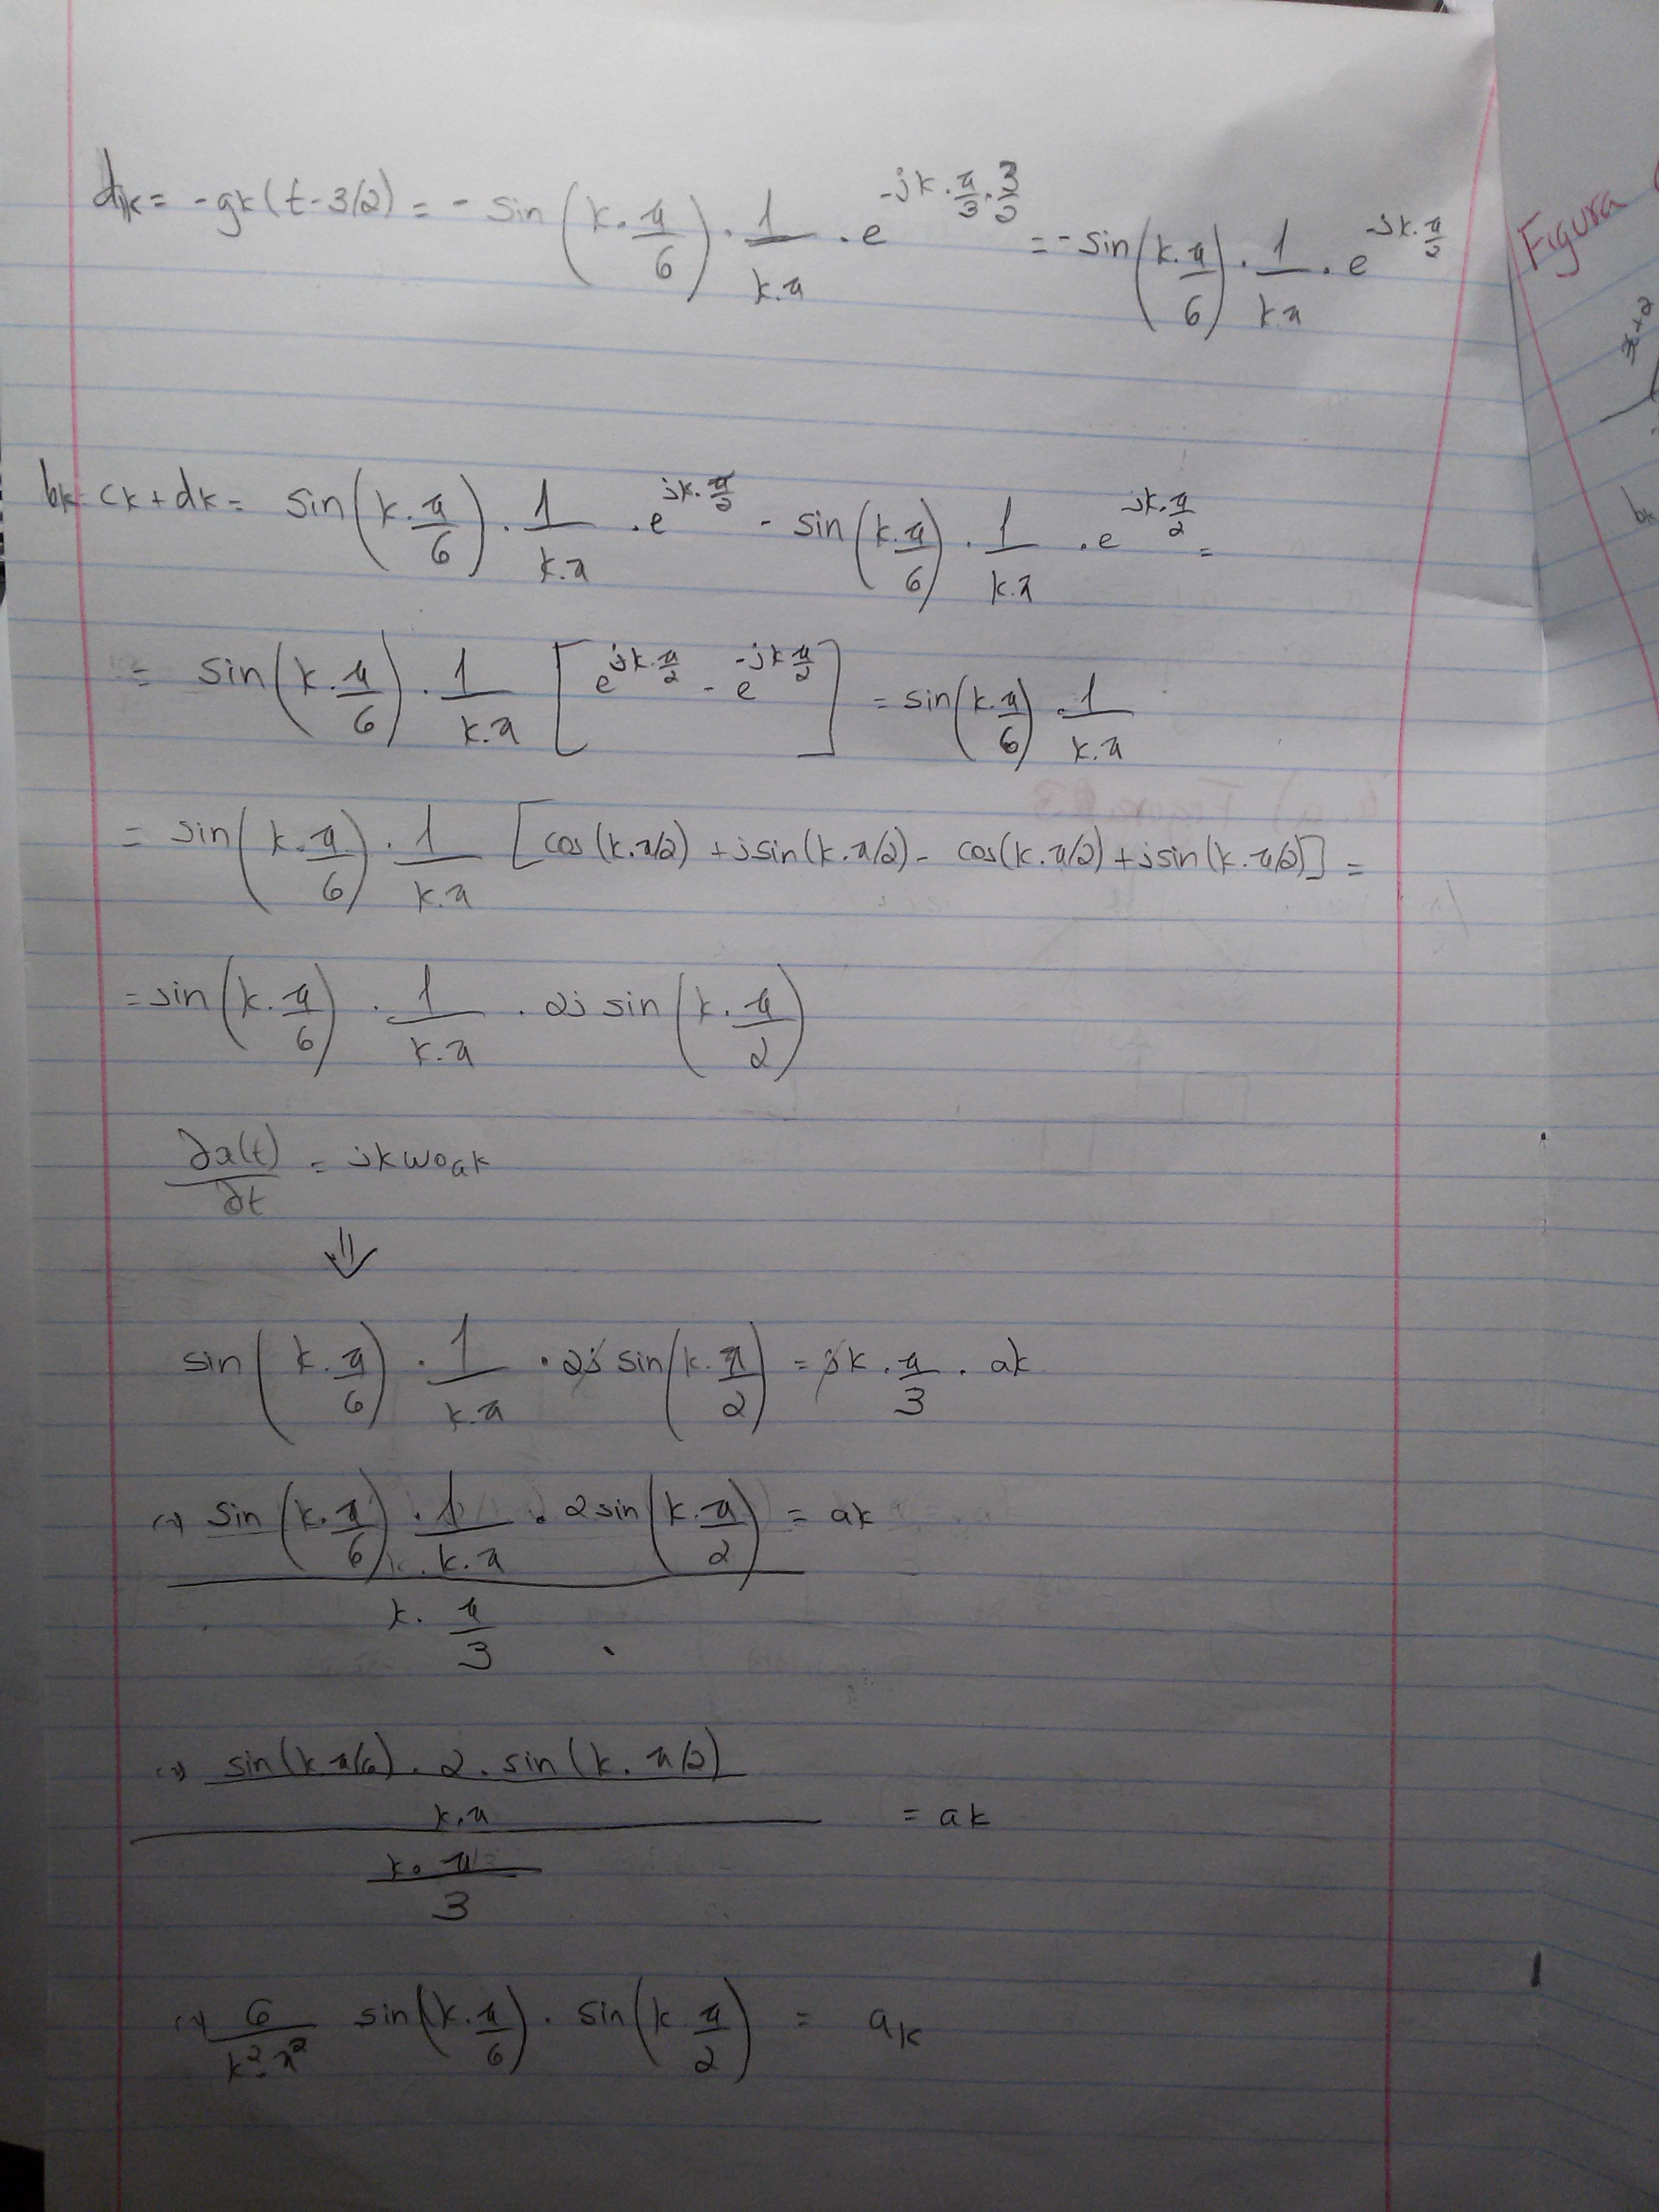 dk = -gk(t-3/2) = - sin(k.π/6) . 1/k.π . e^-jk.π/3.3/2 = - sin(k.π/6) . 1/k.π . e^-jk.π/2
Figura
x+2
bk = ck + dk = sin(k.π/6) . 1/k.π . e^jk.π/2 - sin(k.π/6) . 1/k.π . e^jk.π/2 =
= sin(k.π/6) . 1/k.π [e^jk.π/2 - e^-jk π/2] = sin(k.π/6) . 1/k.π
= sin(k.π/6) . 1/k.π [cos(k.π/2) + jsin(k.π/2) - cos(k.π/2) + jsin(k.π/2)] =
= sin(k.π/6) . 1/k.π . 2j sin(k.π/2)
∂x(t)/∂t = jkwoak
⇓
sin(k.π/6) . 1/k.π . 2j sin(k.π/2) = jk.π/3 . ak
(=) sin(k.π/6) . 1/k.π . 2sin(k.π/2) / k.π/3 = ak
(=) sin(k π/6) . 2 . sin(k.π/2) / k.π / k.π/3 = ak
(=) 6/k².π² sin(k.π/6) . sin(k π/2) = ak